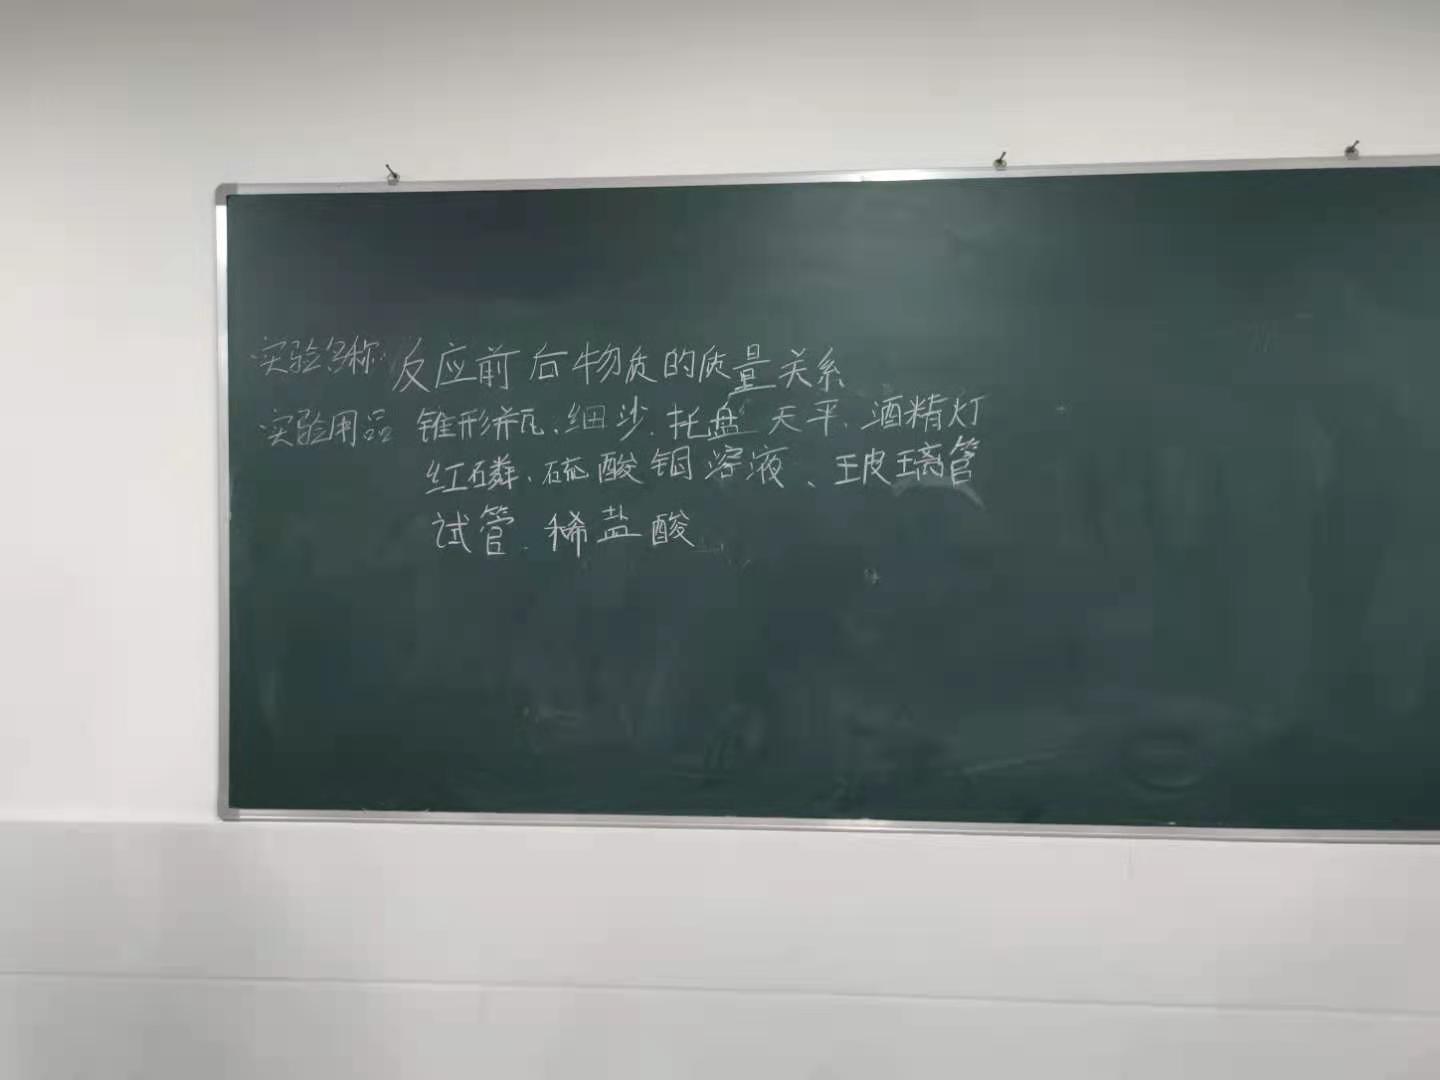 实验名称 反应前后物质的质量关系
实验用品 锥形瓶、细沙、托盘天平、酒精灯
红磷、硫酸铜溶液、玻璃管
试管、稀盐酸